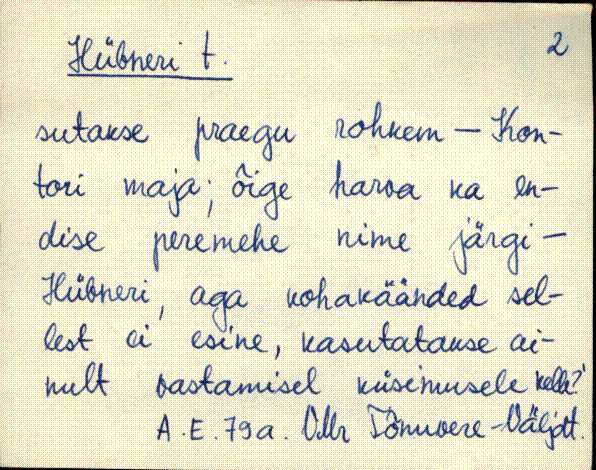 Hübneri t. 2
sutakse praegu rohkem – Kon-
tori maja; õige harva ka en-
dise peremehe nime järgi –
Hübneri, aga kohakäänded sel-
lest ei esine, kasutatakse ai-
nult vastamisel küsimusele kelle?
A. E. 79a. VMr Tõnuvere-Väljott.